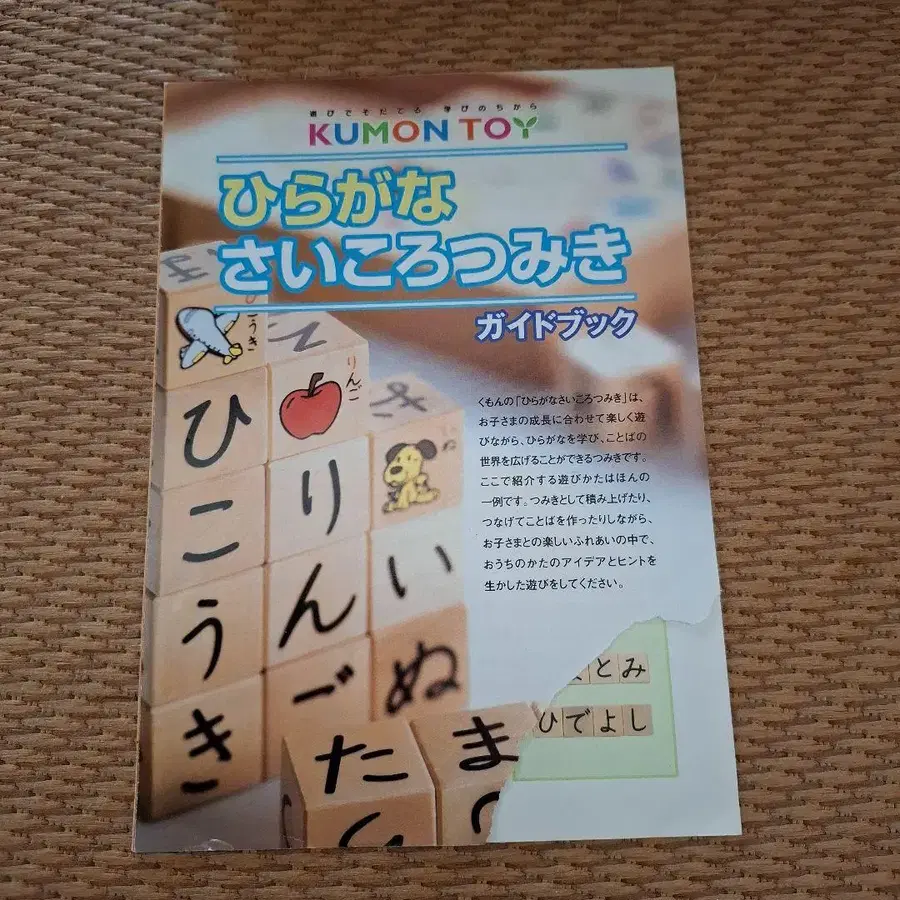 遊びでそだてる 学びのちから
KUMON TOY
ひらがな
さいころつみき
ガイドブック
くもんの「ひらがなさいころつみき」は、
お子さまの成長に合わせて楽しく遊
びながら、ひらがなを学び、ことばの
世界を広げることができるつみきです。
ここで紹介する遊びかたはほんの
一例です。つみきとして積み上げたり、
つなげてことばを作ったりしながら、
お子さまとの楽しいふれあいの中で、
おうちのかたのアイデアとヒントを
生かした遊びをしてください。
ひこうき
りんご
りんご
き
いぬ
たま
とみ
ひでよし